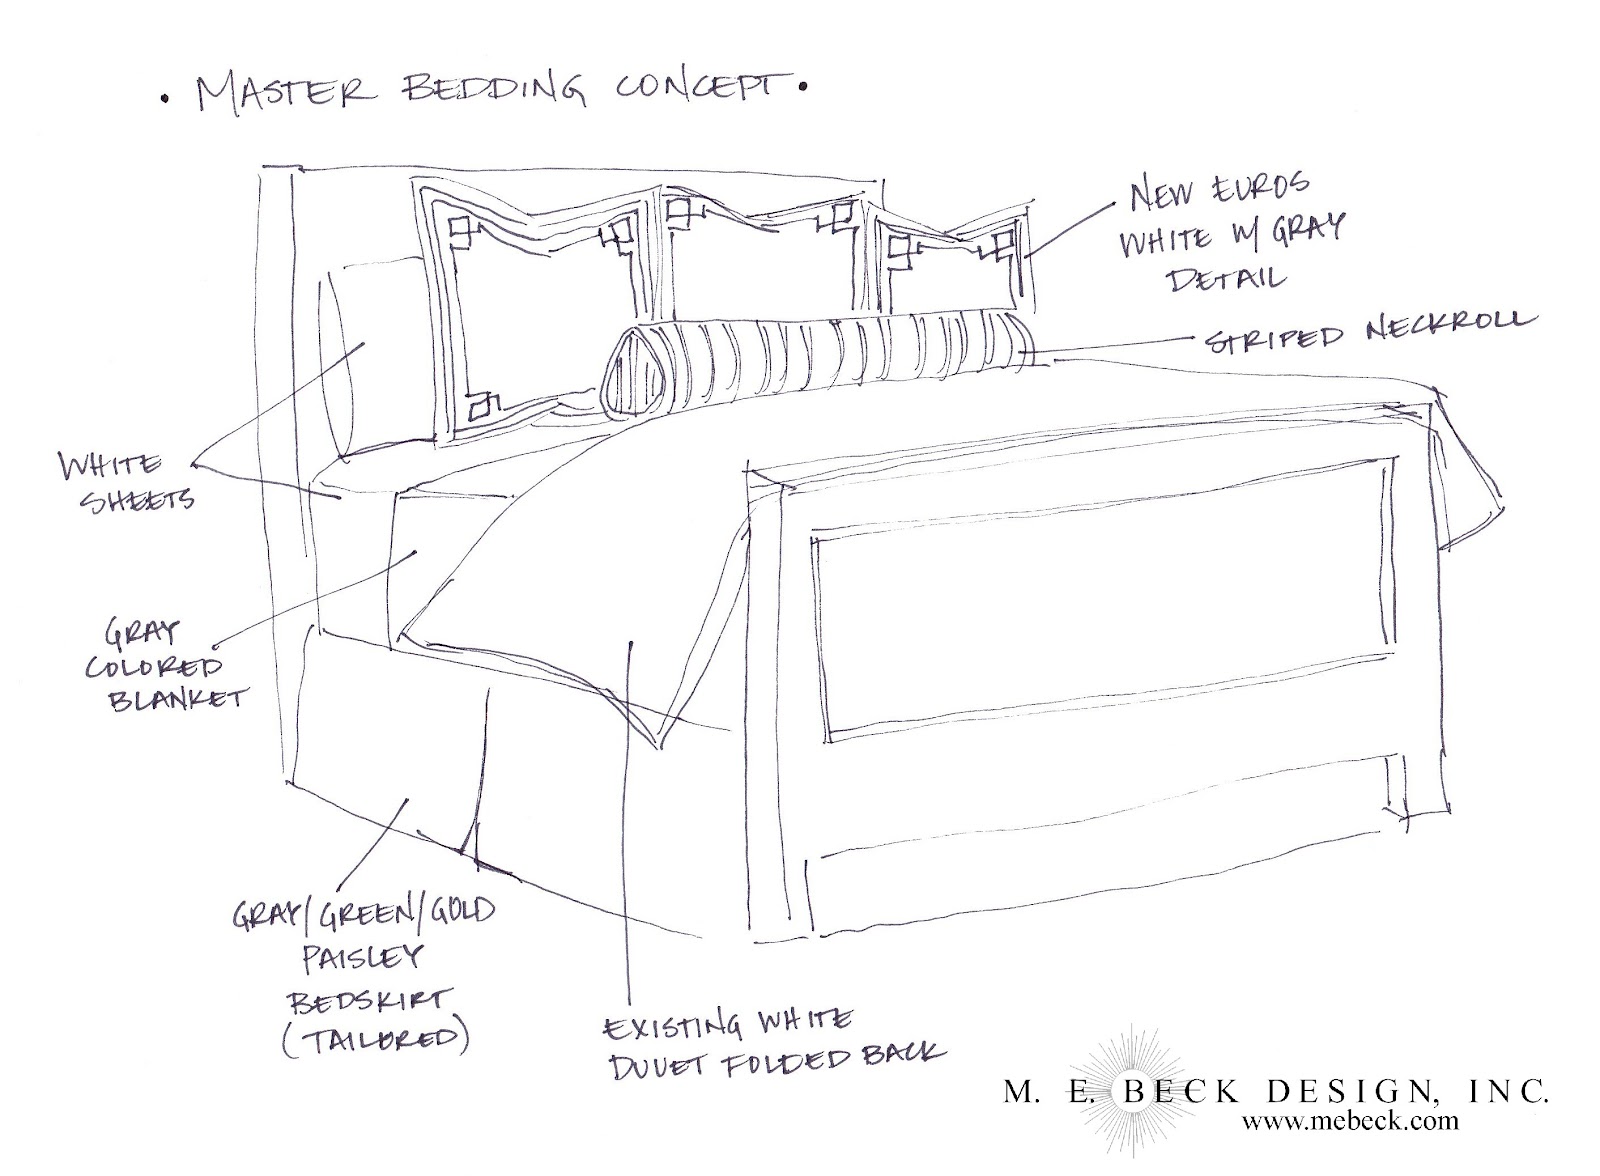 • MASTER BEDDING CONCEPT •
NEW EUROS
WHITE W/ GRAY
DETAIL
STRIPED NECKROLL
WHITE
SHEETS
GRAY
COLORED
BLANKET
GRAY/GREEN/GOLD
PAISLEY
BEDSKIRT
(TAILORED)
EXISTING WHITE
DUVET FOLDED BACK
M. E. BECK DESIGN, INC.
www.mebeck.com